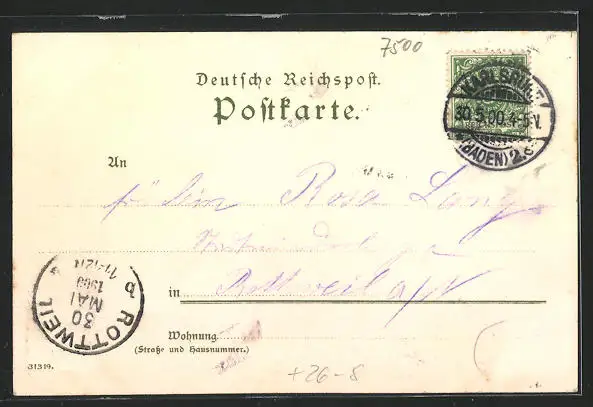 7500
Deutsche Reichspost.
Postkarte.
KARLSRUHE
30.5.00.4-5V.
(BADEN) 2.
An
Rosa Lang
in Rottweil a/N
ROTTWEIL
30
MAI
1900
11-12N
b
Wohnung
(Straße und Hausnummer.)
31319.
+26-8